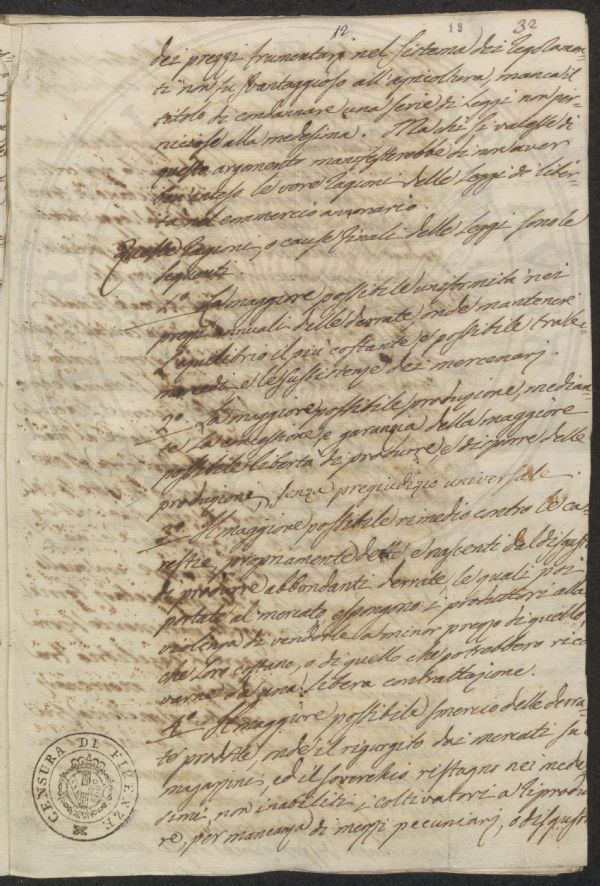 12 12 32
dei prezzi frumentarj nel sistema dei regolamen-
ti non fu vantaggioso all'agricoltura, manca il
titolo di condannare una serie di Leggi non per-
niciose alla medesima. Ma chi si valesse di
questo argomento manifesterebbe di non aver
ben inteso le vere ragioni delle Leggi di liber-
tà nel commercio annonario.
Queste ragioni, o cause finali delle Leggi sono le
seguenti.
1.° La maggiore possibile uniformità nei
prezzi annuali delle derrate, onde mantenere
l'equilibrio il più costante, e possibile tra le
mercedi e le sussistenze dei mercenarj.
2.° La maggiore possibile produzione, median-
te la concessione, e garanzia della maggiore
possibile libertà di produrre, e disporre delle
produzione, senza pregiudizio universale.
3.° Il maggiore possibile rimedio contro le ca-
restie, propriamente dette, e nascenti dal disgusto
di produrre abbondanti derrate, le quali poi
portate al mercato espongano i produttori alla
violenza di venderle a minor prezzo di quello
che loro costano, o di quello che potrebbero rica
varne da una libera contrattazione.
4.° Il maggiore possibile smercio delle derra-
te prodotte, onde il rigurgito dai mercati sui
magazzini, ed il soverchio ristagno nei mede
simi, non inabiliti i coltivatori a riprodur
re, per mancanza di mezzi pecuniarj, o disgusti
CENSURA DI FIRENZE